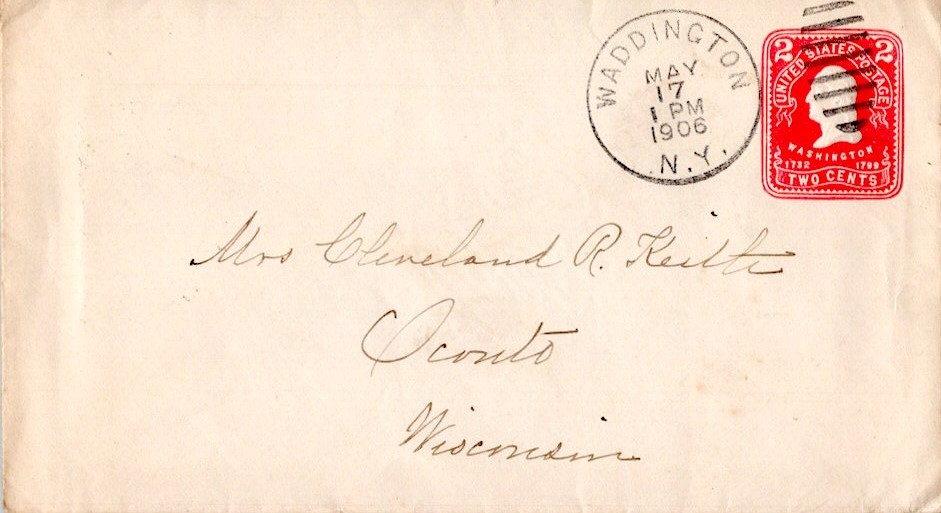 WADDINGTON
MAY
17
1 PM
1906
N.Y.
2 2
UNITED STATES POSTAGE
WASHINGTON
1732 1799
TWO CENTS
Mrs Cleveland R. Keith
Oconto
Wisconsin